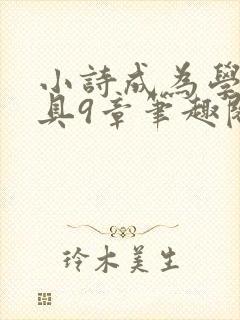 小詩成為學
具9章筆趣閣
玲木美生